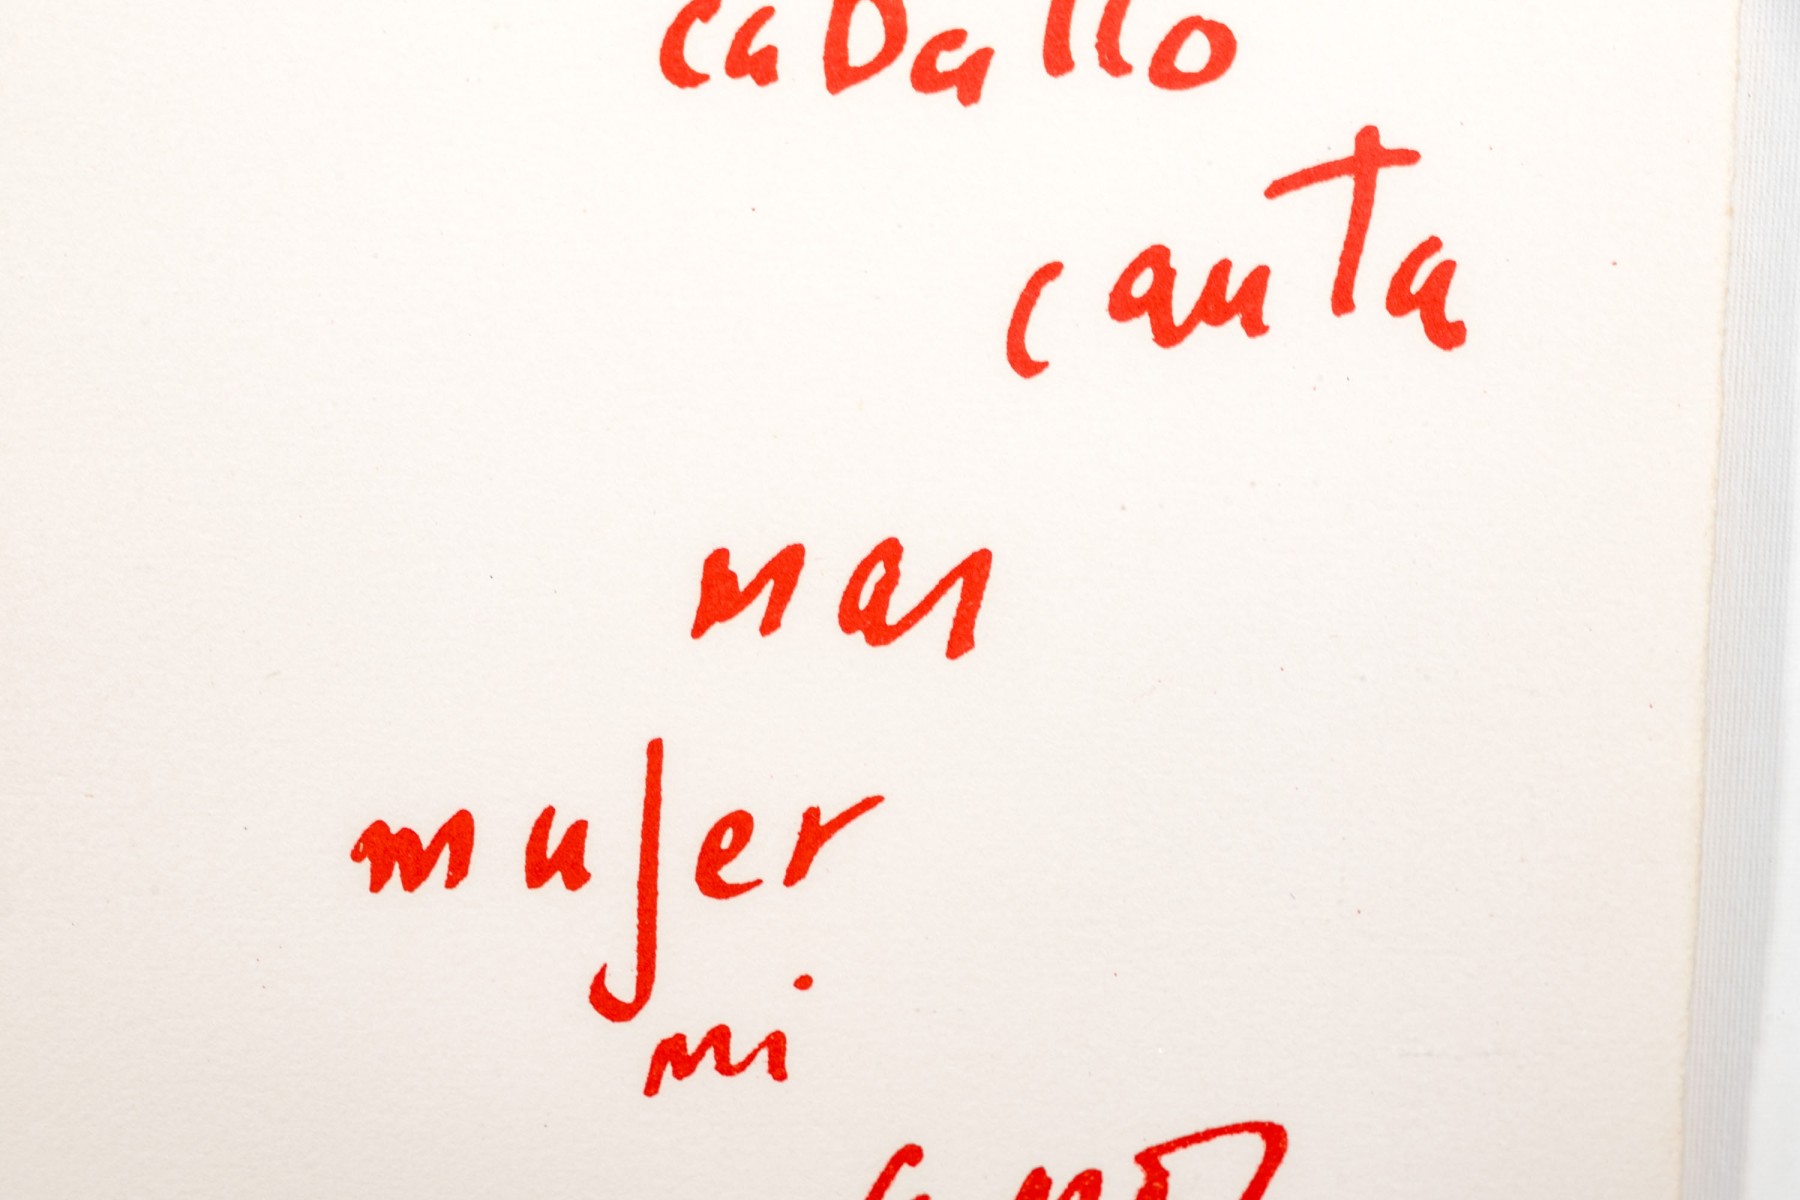 caballo
canta
mar
mujer
mi
amor